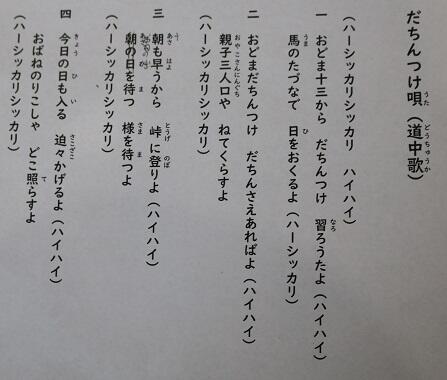 だちんつけ唄(道中歌)
(ハーシッカリシッカリ ハイハイ)
一 おどま十三から だちんつけ 習ろうたよ(ハイハイ)
馬のたづなで 日をおくるよ(ハーシッカリ)
二 おどまだちんつけ だちんさえあればよ(ハイハイ)
親子三人口や ねてくらすよ
(ハーシッカリシッカリ)
三 朝も早うから 峠に登りよ(ハイハイ)
朝の日を待つ 様を待つよ
(ハーシッカリシッカリ)
四 今日の日も入る 迫々かげるよ(ハイハイ)
おばねのりこしゃ どこ照らすよ
(ハーシッカリシッカリ)